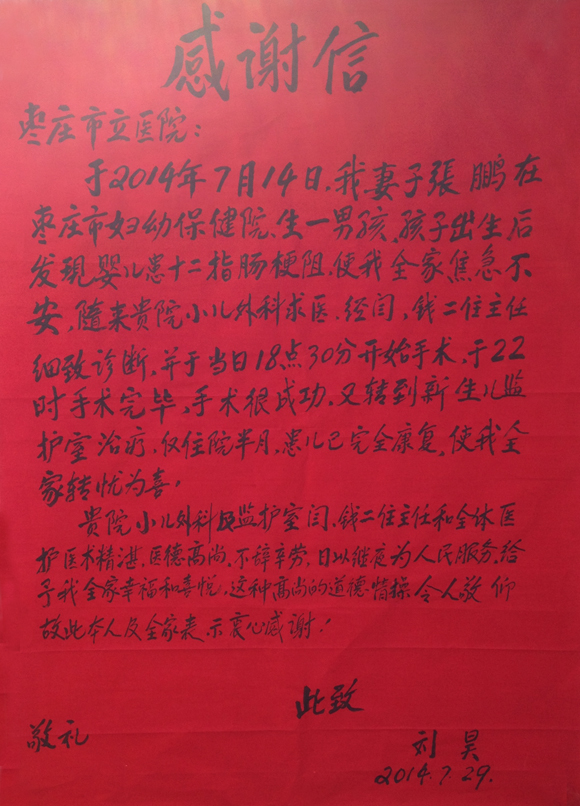 感谢信
枣庄市立医院：
于2014年7月14日，我妻子張鹏在
枣庄市妇幼保健院，生一男孩，孩子出生后
发现婴儿患十二指肠梗阻，使我全家焦急不
安，随来贵院小儿外科求医，经闫，钱二位主任
细致诊断，并于当日18点30分开始手术，于22
时手术完毕，手术很成功，又转到新生儿监
护室治疗，仅住院半月，患儿已完全康复，使我全
家转忧为喜。
贵院小儿外科及监护室闫，钱二位主任和全体医
护医术精湛，医德高尚，不辞辛劳，日以继夜为人民服务，给
予我全家幸福和喜悦，这种高尚的道德情操令人敬仰
故此本人及全家表示衷心感谢！
此致
敬礼
刘昊
2014.7.29.